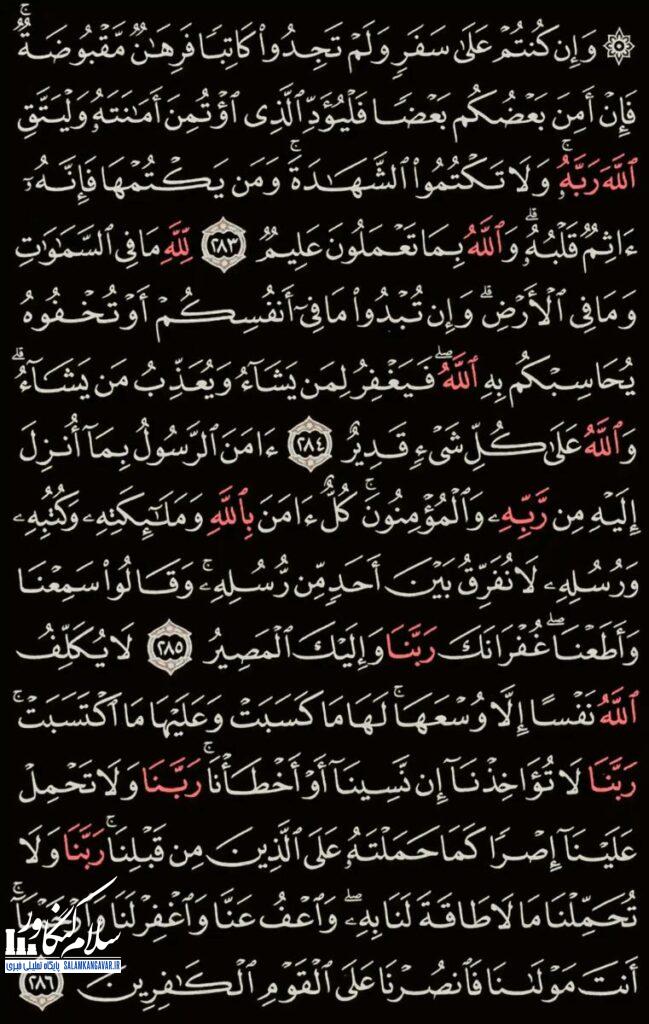 ۞ وَإِن كُنتُمْ عَلَىٰ سَفَرٍ وَلَمْ تَجِدُوا۟ كَاتِبًا فَرِهَـٰنٌ مَّقْبُوضَةٌ ۖ
فَإِنْ أَمِنَ بَعْضُكُم بَعْضًا فَلْيُؤَدِّ ٱلَّذِى ٱؤْتُمِنَ أَمَـٰنَتَهُۥ وَلْيَتَّقِ
ٱللَّهَ رَبَّهُۥ ۗ وَلَا تَكْتُمُوا۟ ٱلشَّهَـٰدَةَ ۚ وَمَن يَكْتُمْهَا فَإِنَّهُۥٓ
ءَاثِمٌ قَلْبُهُۥ ۗ وَٱللَّهُ بِمَا تَعْمَلُونَ عَلِيمٌ ٢٨٣ لِّلَّهِ مَا فِى ٱلسَّمَـٰوَٰتِ
وَمَا فِى ٱلْأَرْضِ ۗ وَإِن تُبْدُوا۟ مَا فِىٓ أَنفُسِكُمْ أَوْ تُخْفُوهُ
يُحَاسِبْكُم بِهِ ٱللَّهُ ۖ فَيَغْفِرُ لِمَن يَشَآءُ وَيُعَذِّبُ مَن يَشَآءُ ۗ
وَٱللَّهُ عَلَىٰ كُلِّ شَىْءٍ قَدِيرٌ ٢٨٤ ءَامَنَ ٱلرَّسُولُ بِمَآ أُنزِلَ
إِلَيْهِ مِن رَّبِّهِۦ وَٱلْمُؤْمِنُونَ ۚ كُلٌّ ءَامَنَ بِٱللَّهِ وَمَلَـٰٓئِكَتِهِۦ وَكُتُبِهِۦ
وَرُسُلِهِۦ لَا نُفَرِّقُ بَيْنَ أَحَدٍ مِّن رُّسُلِهِۦ ۚ وَقَالُوا۟ سَمِعْنَا
وَأَطَعْنَا ۖ غُفْرَانَكَ رَبَّنَا وَإِلَيْكَ ٱلْمَصِيرُ ٢٨٥ لَا يُكَلِّفُ
ٱللَّهُ نَفْسًا إِلَّا وُسْعَهَا ۚ لَهَا مَا كَسَبَتْ وَعَلَيْهَا مَا ٱكْتَسَبَتْ ۗ
رَبَّنَا لَا تُؤَاخِذْنَآ إِن نَّسِينَآ أَوْ أَخْطَأْنَا ۚ رَبَّنَا وَلَا تَحْمِلْ
عَلَيْنَآ إِصْرًا كَمَا حَمَلْتَهُۥ عَلَى ٱلَّذِينَ مِن قَبْلِنَا ۚ رَبَّنَا وَلَا
تُحَمِّلْنَا مَا لَا طَاقَةَ لَنَا بِهِۦ ۖ وَٱعْفُ عَنَّا وَٱغْفِرْ لَنَا وَٱرْحَمْنَآ ۚ
أَنتَ مَوْلَىٰنَا فَٱنصُرْنَا عَلَى ٱلْقَوْمِ ٱلْكَـٰفِرِينَ ٢٨٦
سلام کنگاور
پایگاه تحلیلی خبری SALAMKANGAVAR.IR